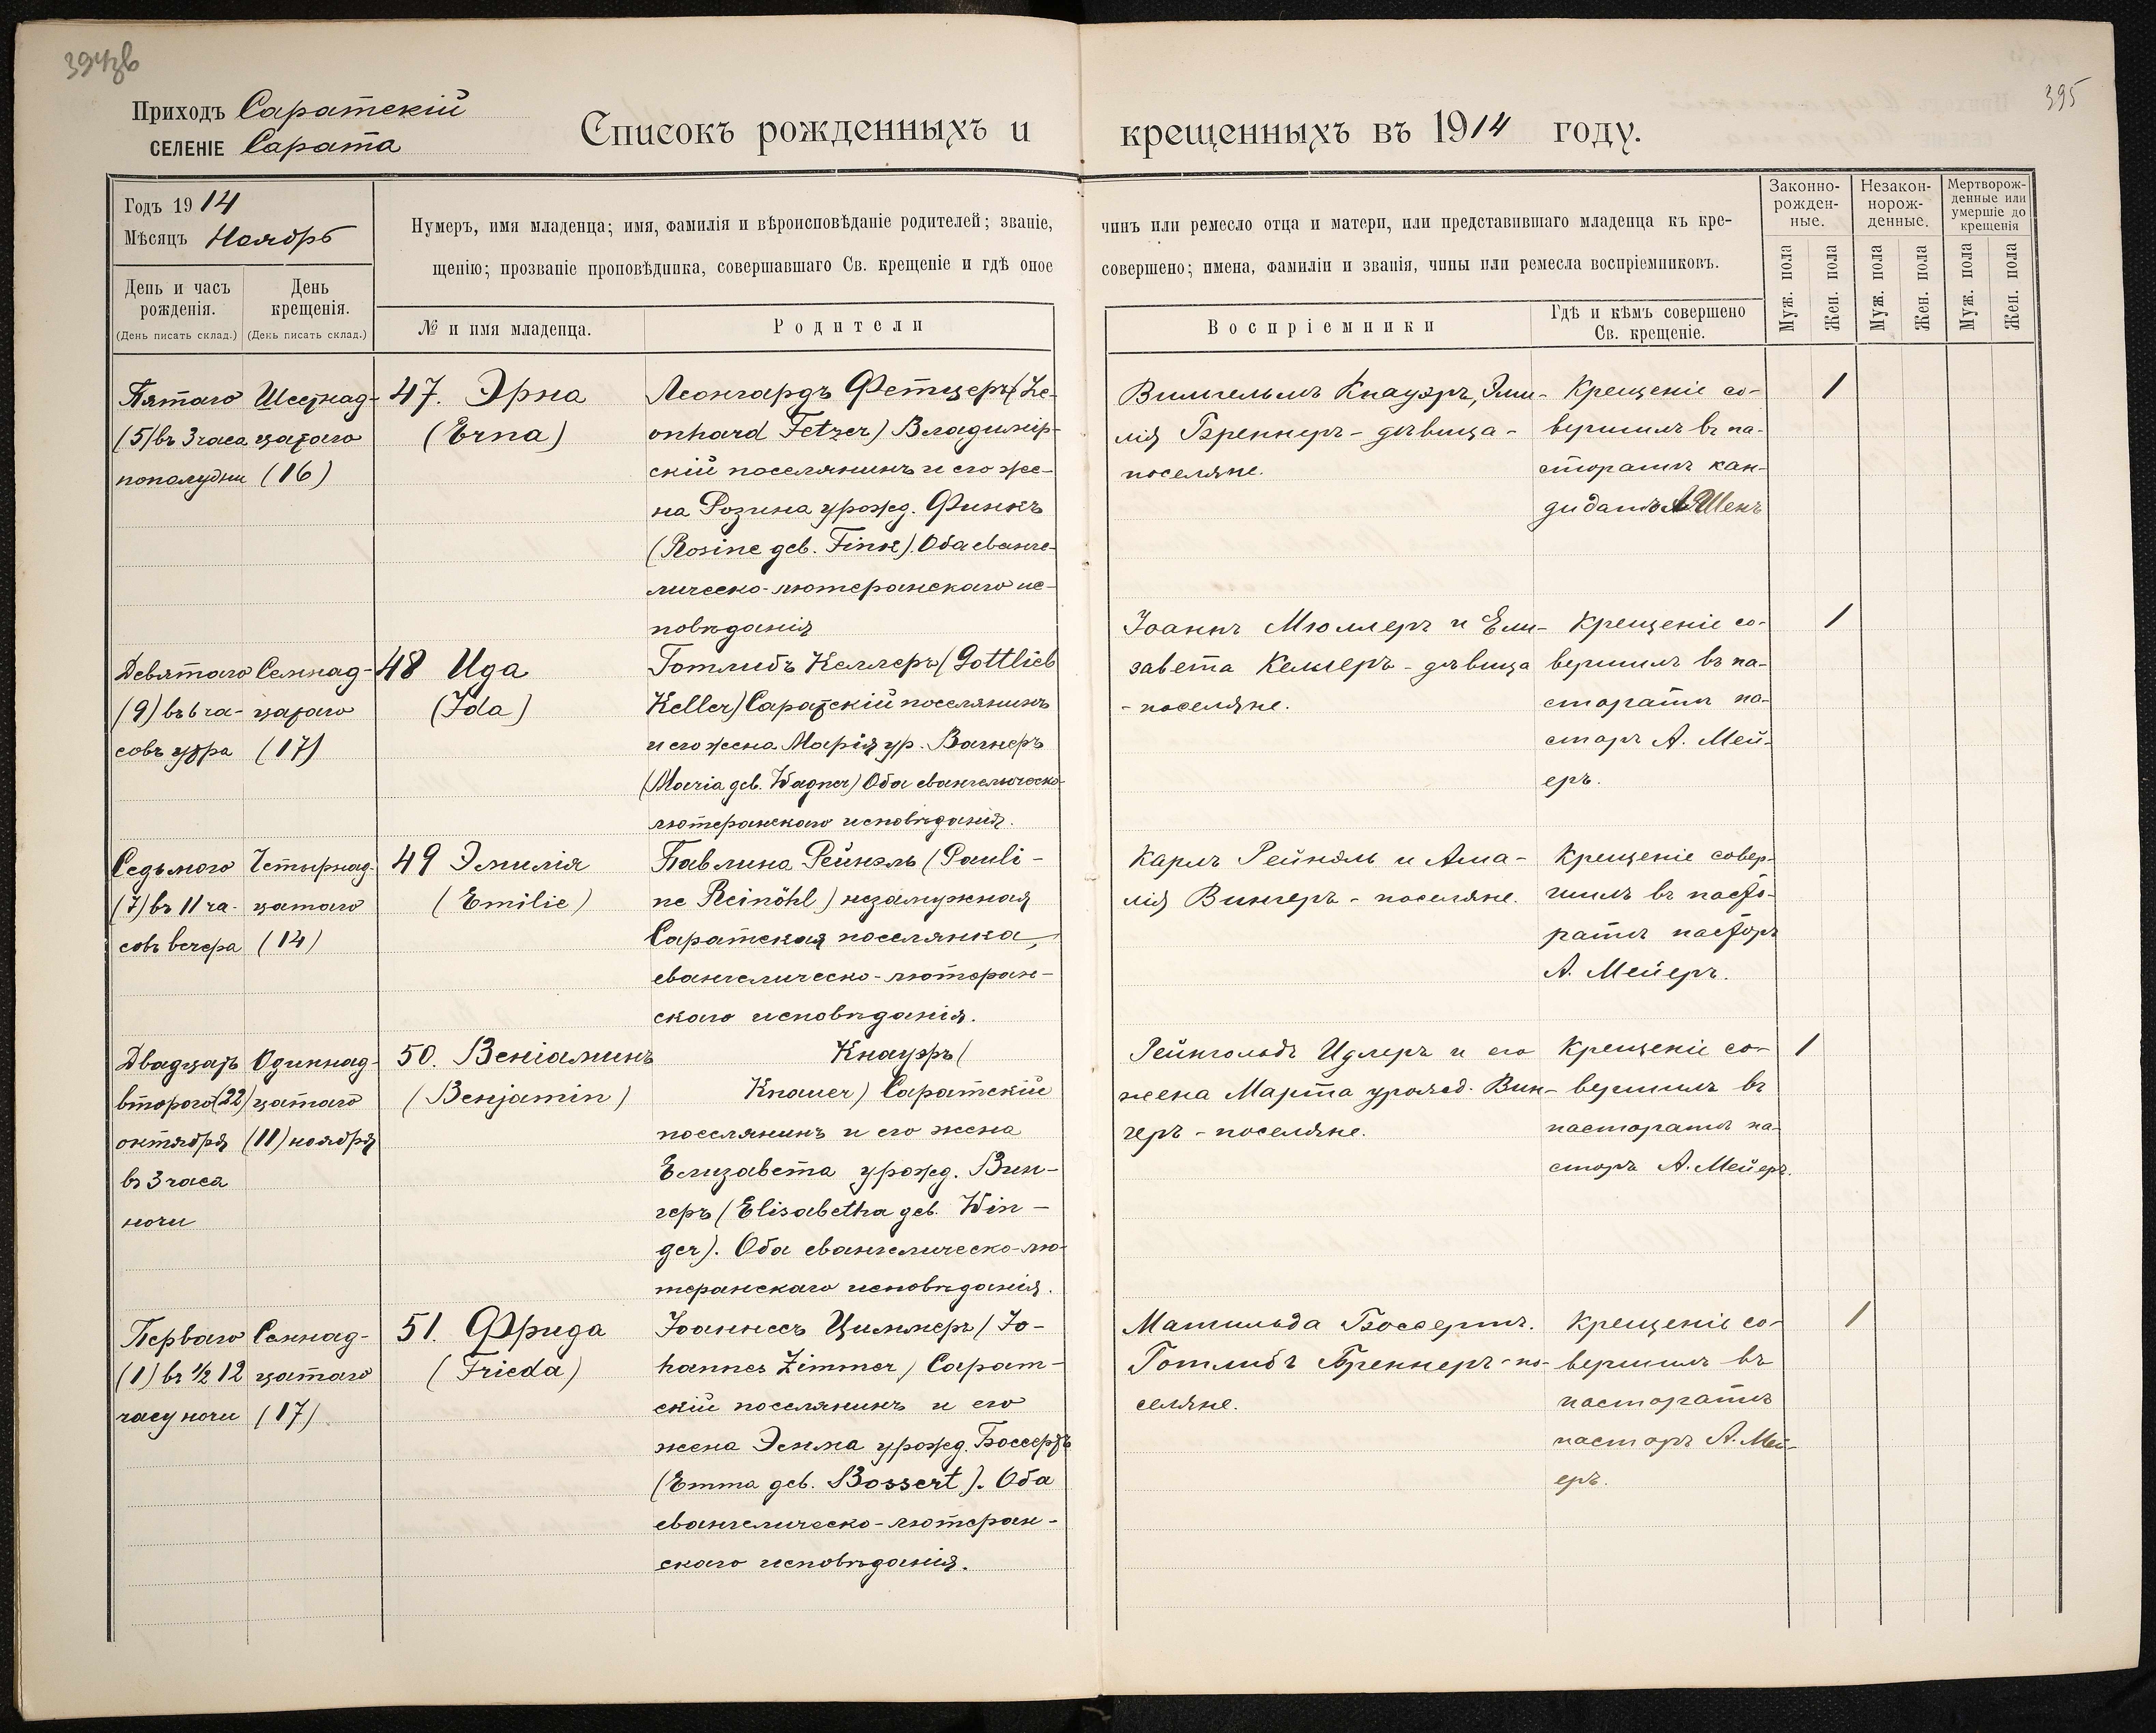 394зв
395
Приходъ Саратскій
СЕЛЕНІЕ Сарата
Списокъ рожденныхъ и крещенныхъ въ 1914 году.
Годъ 1914
Мѣсяцъ Ноябрь
День и часъ рожденія.
(День писать склад.)
День крещенія.
(День писать склад.)
Нумеръ, имя младенца; имя, фамилія и вѣроисповѣданіе родителей; званіе, чинъ или ремесло отца и матери, или представившаго младенца къ кре-
щенію; прозваніе проповѣдника, совершавшаго Св. крещеніе и гдѣ оное совершено; имена, фамиліи и званія, чины или ремесла воспріемниковъ.
№ и имя младенца.
Родители
Воспріемники
Гдѣ и кѣмъ совершено
Св. крещеніе.
Законно-
рожден-
ные.
Незакон-
норож-
денные.
Мертворож-
денные или
умершіе до
крещенія
Муж. пола
Жен. пола
Муж. пола
Жен. пола
Муж. пола
Жен. пола
Пятаго
(5) въ 3 часа
пополудни
Шестнад-
цатаго
(16)
47. Эрна
(Erna)
Леонгардъ Фетцеръ (Le-
onhard Fetzer) Владимір-
скій поселянинъ и его же-
на Розина урожд. Финкъ
(Rosine geb. Fink). Оба еванге-
лическо-лютеранскаго ис-
повѣданія
Вильгельмъ Кнауэръ, Эми-
лія Бреннеръ - дѣвица -
поселяне.
Крещеніе со-
вершилъ въ па-
сторатѣ кан-
дидатъ А. Шенъ
1
Девятаго
(9) въ 6 ча-
совъ утра
Семнад-
цатаго
(17)
48 Ида
(Ida)
Готлибъ Келлеръ (Gottlieb
Keller) Саратскій поселянинъ
и его жена Марія ур. Вагнеръ
(Maria geb. Wagner) Оба евангелическо-
лютеранскаго исповѣданія.
Іоаннъ Мюллеръ и Ели-
завета Келлеръ - дѣвица
- поселяне.
Крещеніе со-
вершилъ въ па-
сторатѣ па-
сторъ А. Мей-
еръ.
1
Седьмого
(7) въ 11 ча-
совъ вечера
Четырнад-
цатаго
(14)
49 Эмилія
(Emilie)
Павлина Рейнэль (Pauli-
ne Reinöhl) незамужная
Саратская поселянка,
евангелическо-лютеран-
скаго исповѣданія.
Карлъ Рейнэль и Ама-
лія Вингеръ - поселяне.
Крещеніе совер-
шилъ въ пасто-
ратѣ пасторъ
А. Мейеръ.
Двадцать
второго (22)
октября
въ 3 часа
ночи
Одиннад-
цатаго
(11) ноября
50. Веніаминъ
(Benjamin)
Кнауэръ (
Knauer) Саратскій
поселянинъ и его жена
Елизавета урожд. Вин-
геръ (Elisabetha geb. Win-
ger). Оба евангелическо-лю-
теранскаго исповѣданія.
Рейнгольдъ Идлеръ и его
жена Марта урожд. Вин-
геръ - поселяне.
Крещеніе со-
вершилъ въ
пасторатѣ па-
сторъ А. Мейеръ.
1
Перваго
(1) въ ½ 12
часу ночи
Семнад-
цатаго
(17)
51. Фрида
(Frieda)
Іоаннесъ Циммеръ (Jo-
hannes Zimmer) Сарат-
скій поселянинъ и его
жена Эмма урожд. Боссертъ
(Emma geb. Bossert). Оба
евангелическо-лютеран-
скаго исповѣданія.
Матильда Боссертъ.
Готлибъ Бреннеръ - по-
селяне.
Крещеніе со-
вершилъ въ
пасторатѣ
пасторъ А. Мей-
еръ.
1